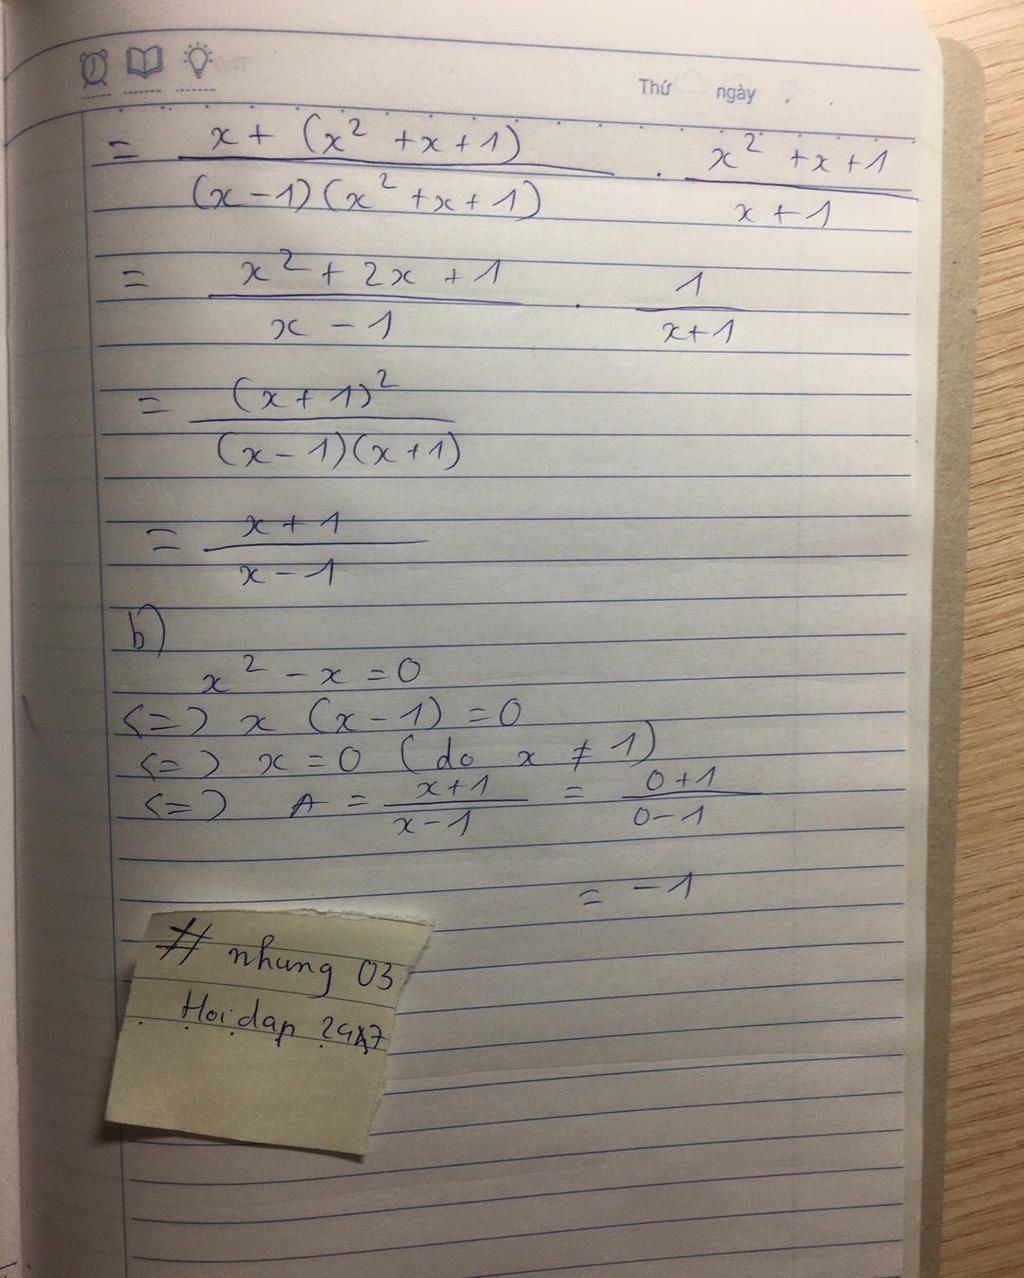 Thứ ngày
= x + (x² + x + 1) / (x − 1)(x² + x + 1) . x² + x + 1 / x + 1
= x² + 2x + 1 / x − 1 . 1 / x + 1
= (x + 1)² / (x − 1)(x + 1)
= x + 1 / x − 1
b)
x² − x = 0
<=> x (x − 1) = 0
<=> x = 0 (do x ≠ 1)
<=> A = x + 1 / x − 1 = 0 + 1 / 0 − 1
= − 1
# nhung 03
Hoidap